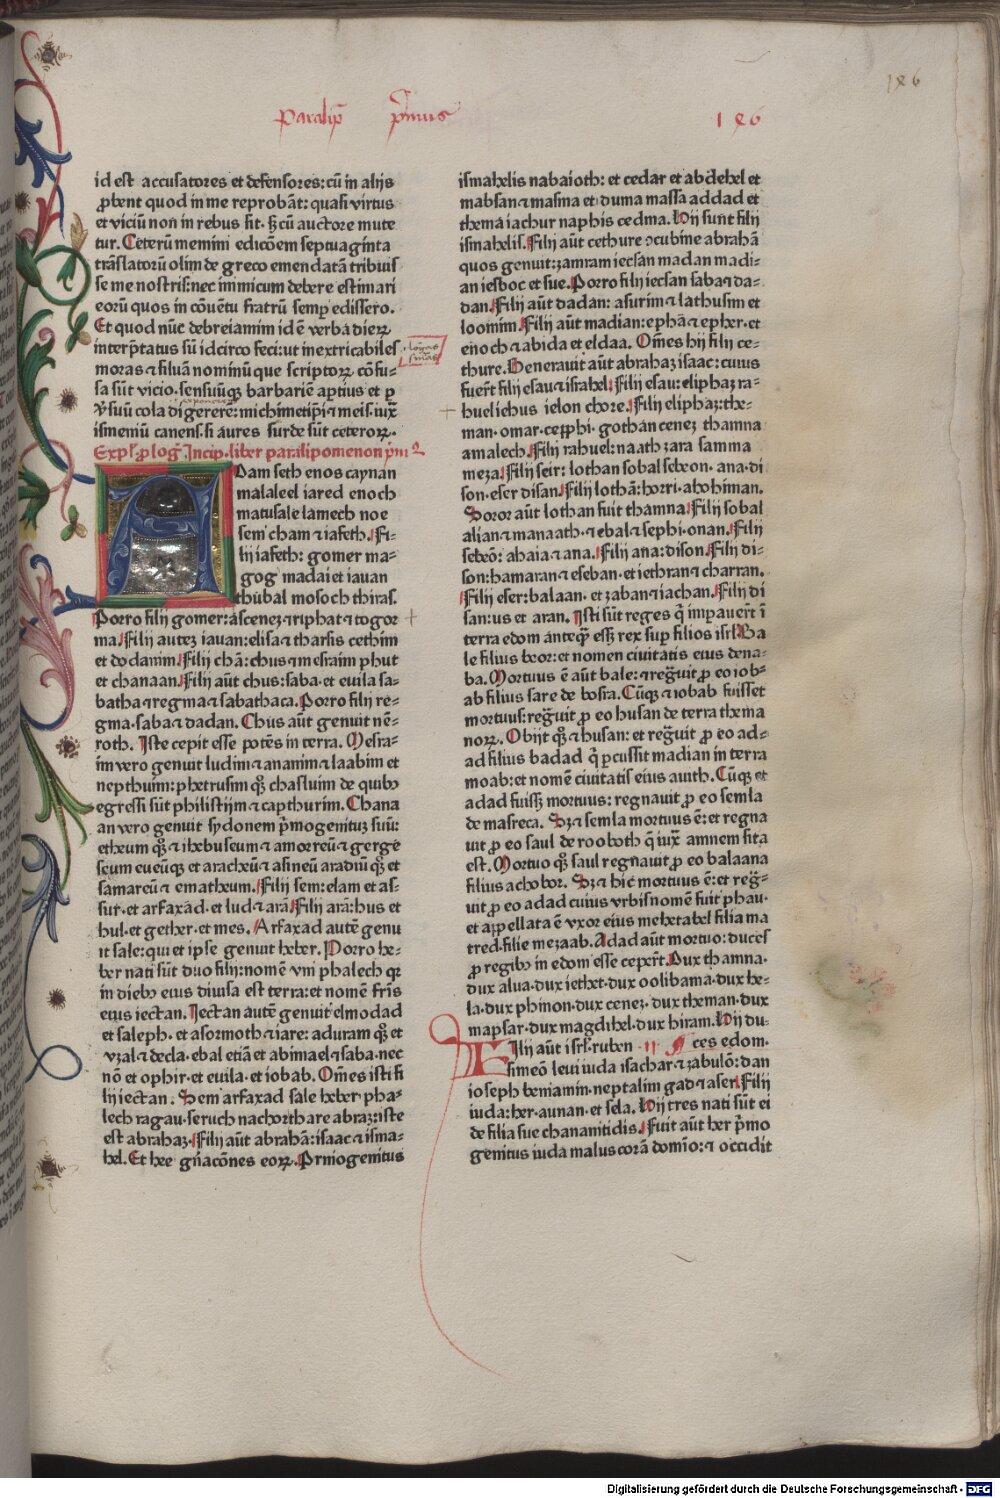 Paralip̄ p̄mus 186
186
id est accusatores et defensores: cū in alijs
ꝓbent quod in me reprobāt: quasi virtus
et viciū non in rebus sit. sꝫ cū auctore mute
tur. Ceterū memini edicōem septuaginta
trāslatorū olim de greco emendatā tribuis
se me nostris: nec inimicum debere estimari
eorū quos in cōuētu fratrū semꝑ edissero.
Et quod nūc debreiamim id ē verba dieꝝ
interp̄tatus sū idcirco feci: ut inextricabiles
moras ⁊ siluā nominū que scriptoꝝ cōfu-
sa sūt vicio. sensuūqꝫ barbariē aptius et ꝑ
v̄suū cola digererē: michimetip̄i ⁊ meis. iux̄
ismeniū canens. si aures surde sūt ceteroꝝ.
Expl̄. ꝓloḡ. Incip. liber paralipomenon p̄m
Adam seth enos caynan
malaleel iared enoch
matusale lamech noe
sem cham ⁊ iafeth. Fi-
lij iafeth: gomer ma-
gog madai et iauan
thubal mosoch thiras.
Porro filij gomer: ascenez ⁊ riphat ⁊ togor
ma. Filij autez iauan: elisa ⁊ tharsis cethim
et dodanim. Filij chā: chus ⁊ mesraim phut
et chanaan. Filij aūt chus: saba. et euila sa-
batha ⁊ regma ⁊ sabathaca. Porro filij re-
gma. saba ⁊ dadan. Chus aūt genuit nē-
roth. Iste cepit esse potēs in terra. Mesra-
im vero genuit ludim ⁊ ananim ⁊ laabim et
nepthuim: phetrusim qꝫ chasluim de quibꝰ
egressi sūt philistijm ⁊ capthurim. Chana
an vero genuit sydonem p̄mogenituz suū:
etheum qꝫ ⁊ ihebuseum ⁊ amorreū ⁊ gerge
seum eueūqꝫ et aracheū ⁊ asineū aradiū qꝫ et
samareū ⁊ ematheum. Filij sem: elam et as-
sur. et arfaxad. et lud ⁊ arā. Filij arā: hus et
hul. et gether. et mes. Arfaxad autē genu
it sale: qui et ipse genuit heber. Porro he-
ber nati sūt duo filij: nomē vni phalech qꝛ
in diebꝰ eius diuisa est terra: et nomē fr̄is
eius iectan. Iectan autē genuit elmodad
et saleph. et asormoth ⁊ iare: aduram qꝫ et
vzal ⁊ decla. ebal etiā et abimael ⁊ saba. nec
nō et ophir. et euila. et iobab. Om̄es isti fi
lij iectan. Sem arfaxad sale heber pha-
lech ragau. seruch nachor thare abraz: iste
est abrahaz. Filij aūt abrahā: isaac ⁊ isma-
hel. Et hee gn̄acōnes eoꝝ. Prmogenitus
ismahelis nabaioth: et cedar et abdehel et
mabsan ⁊ masma et duma massa addad et
thema iachur naphis cedma. Hij sunt filij
ismahelis. Filij aūt cethure ↄcubine abrahā
quos genuit: zamram iecsan madan madi-
an iesboc et sue. Porro filij iecsan saba ⁊ da-
dan. Filij aūt dadan: asurim ⁊ lathusim et
loomim. Filij aūt madian: ephā ⁊ epher. et
enoch ⁊ abida et eldaa. Om̄es hij filij ce-
thure. Generauit aūt abrahaz isaac: cuius
fuer̄t filij esau ⁊ israhel. Filij esau: eliphaz ra-
huel iehus ielon chore. Filij eliphaz: the-
man. omar. cepphi. gothan cenez thamna
amalech. Filij rahuel: naath zara samma
meza. Filij seir: lothan sobal sebeon. ana. di
son. eser disan. Filij lothā: horri. ahohiman.
Soror aūt lothan fuit thamna. Filij sobal
alian ⁊ manaath. ⁊ ebal ⁊ sephi. onan. Filij
sebeō: ahaia ⁊ ana. Filij ana: dison. Filij di-
son: hamaran ⁊ eseban. et iethran ⁊ charran.
Filij eser: balaan. et zaban ⁊ iachan. Filij di
san: us et aran. Isti sūt reges q̄ imꝑauer̄t ī
terra edom anteqꝫ essꝫ rex suꝑ filios isrl̄. Ba
le filius beor: et nomen ciuitatis eius dena-
ba. Mortuus ē aūt bale: ⁊ reḡuit ꝓ eo iob-
ab filius sare de bosra. Cūqꝫ ⁊ iobab fuisset
mortuus: reḡuit ꝓ eo husan de terra thema
noꝝ. Obijt qꝫ ⁊ husan: et reḡuit ꝓ eo ad-
ad filius badad q̄ ꝑcussit madian in terra
moab: et nomē ciuitatis eius auith. Cūqꝫ et
adad fuissꝫ mortuus: regnauit ꝓ eo semla
de masreca. Sꝫ ⁊ semla mortuus ē: et regna
uit ꝓ eo saul de rooboth q̄ iux̄ amnem sita
est. Mortuo qꝫ saul regnauit ꝓ eo balaana
filius achobor. Sꝫ ⁊ hic mortuus ē: et reḡ-
uit ꝓ eo adad cuius vrbis nomē fuit phau.
et appellata ē vxor eius mehetabel filia ma
tred. filie mezaab. Adad aūt mortuo: duces
ꝓ regibꝰ in edom esse ceper̄t. Dux thamna.
dux alua. dux iethet. dux oolibama. dux he-
la. dux phinon. dux cenez. dux theman. dux
mapsar. dux magdihel. dux hiram. Hij du-
Filij aūt isrl̄. ruben . II . ces edom.
simeō leui iuda isachar ⁊ zabulō: dan
ioseph beniamin. neptalim gad ⁊ aser. Filij
iuda: her. aunan. et sela. Hij tres nati sūt ei
de filia sue chananitidis. Fuit aūt her p̄mo
genitus iuda malus corā domīo: ⁊ occidit
Digitalisierung gefördert durch die Deutsche Forschungsgemeinschaft - DFG